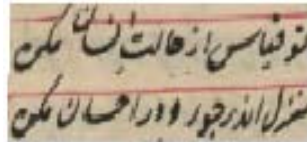 تو قیاس از حالت انسان مکن
منزل اندر جور و در احسان مکن